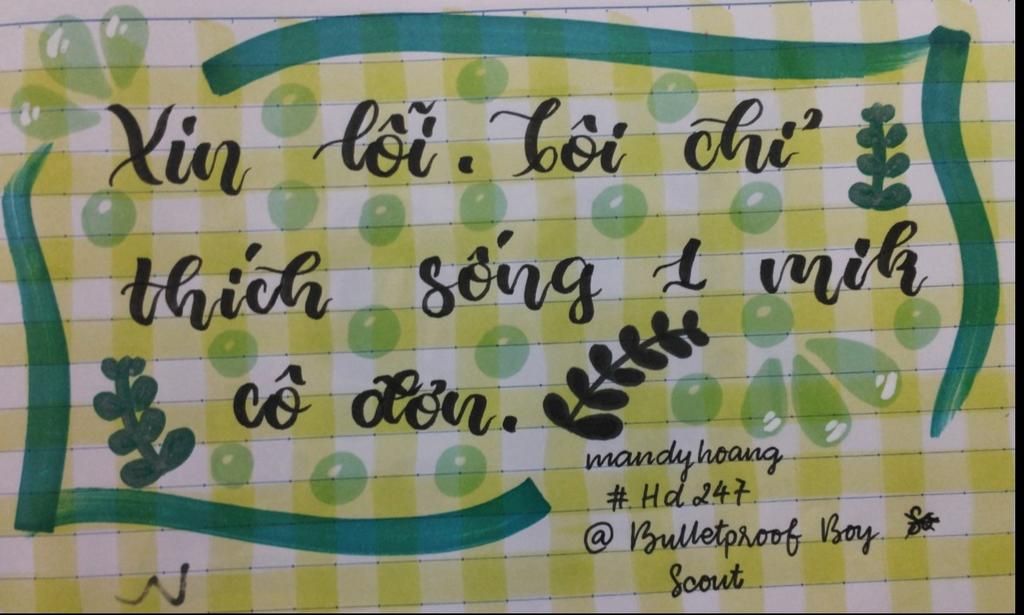 Xin lỗi. Tôi chỉ
thích sống 1 mik
cô đơn.
mandyhoang
# Hd 247
@ Bulletproof Boy
Scout
N